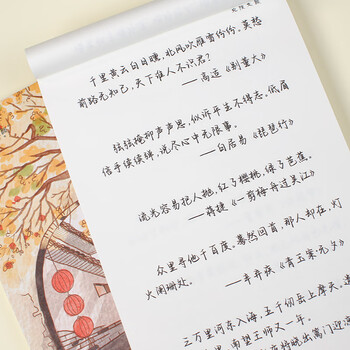 千里黄云白日曛,北风吹雁雪纷纷。莫愁
前路无知己,天下谁人不识君?
——高适《别董大》
弦弦掩抑声声思,似诉平生不得志。低眉
信手续续弹,说尽心中无限事。
——白居易《琵琶行》
流光容易把人抛,红了樱桃,绿了芭蕉。
——蒋捷《一剪梅·舟过吴江》
众里寻他千百度。蓦然回首,那人却在,灯
火阑珊处。
——辛弃疾《青玉案·元夕》
三万里河东入海,五千仞岳上摩天。遗
里,南望王师又一年。
将晓出篱门迎凉